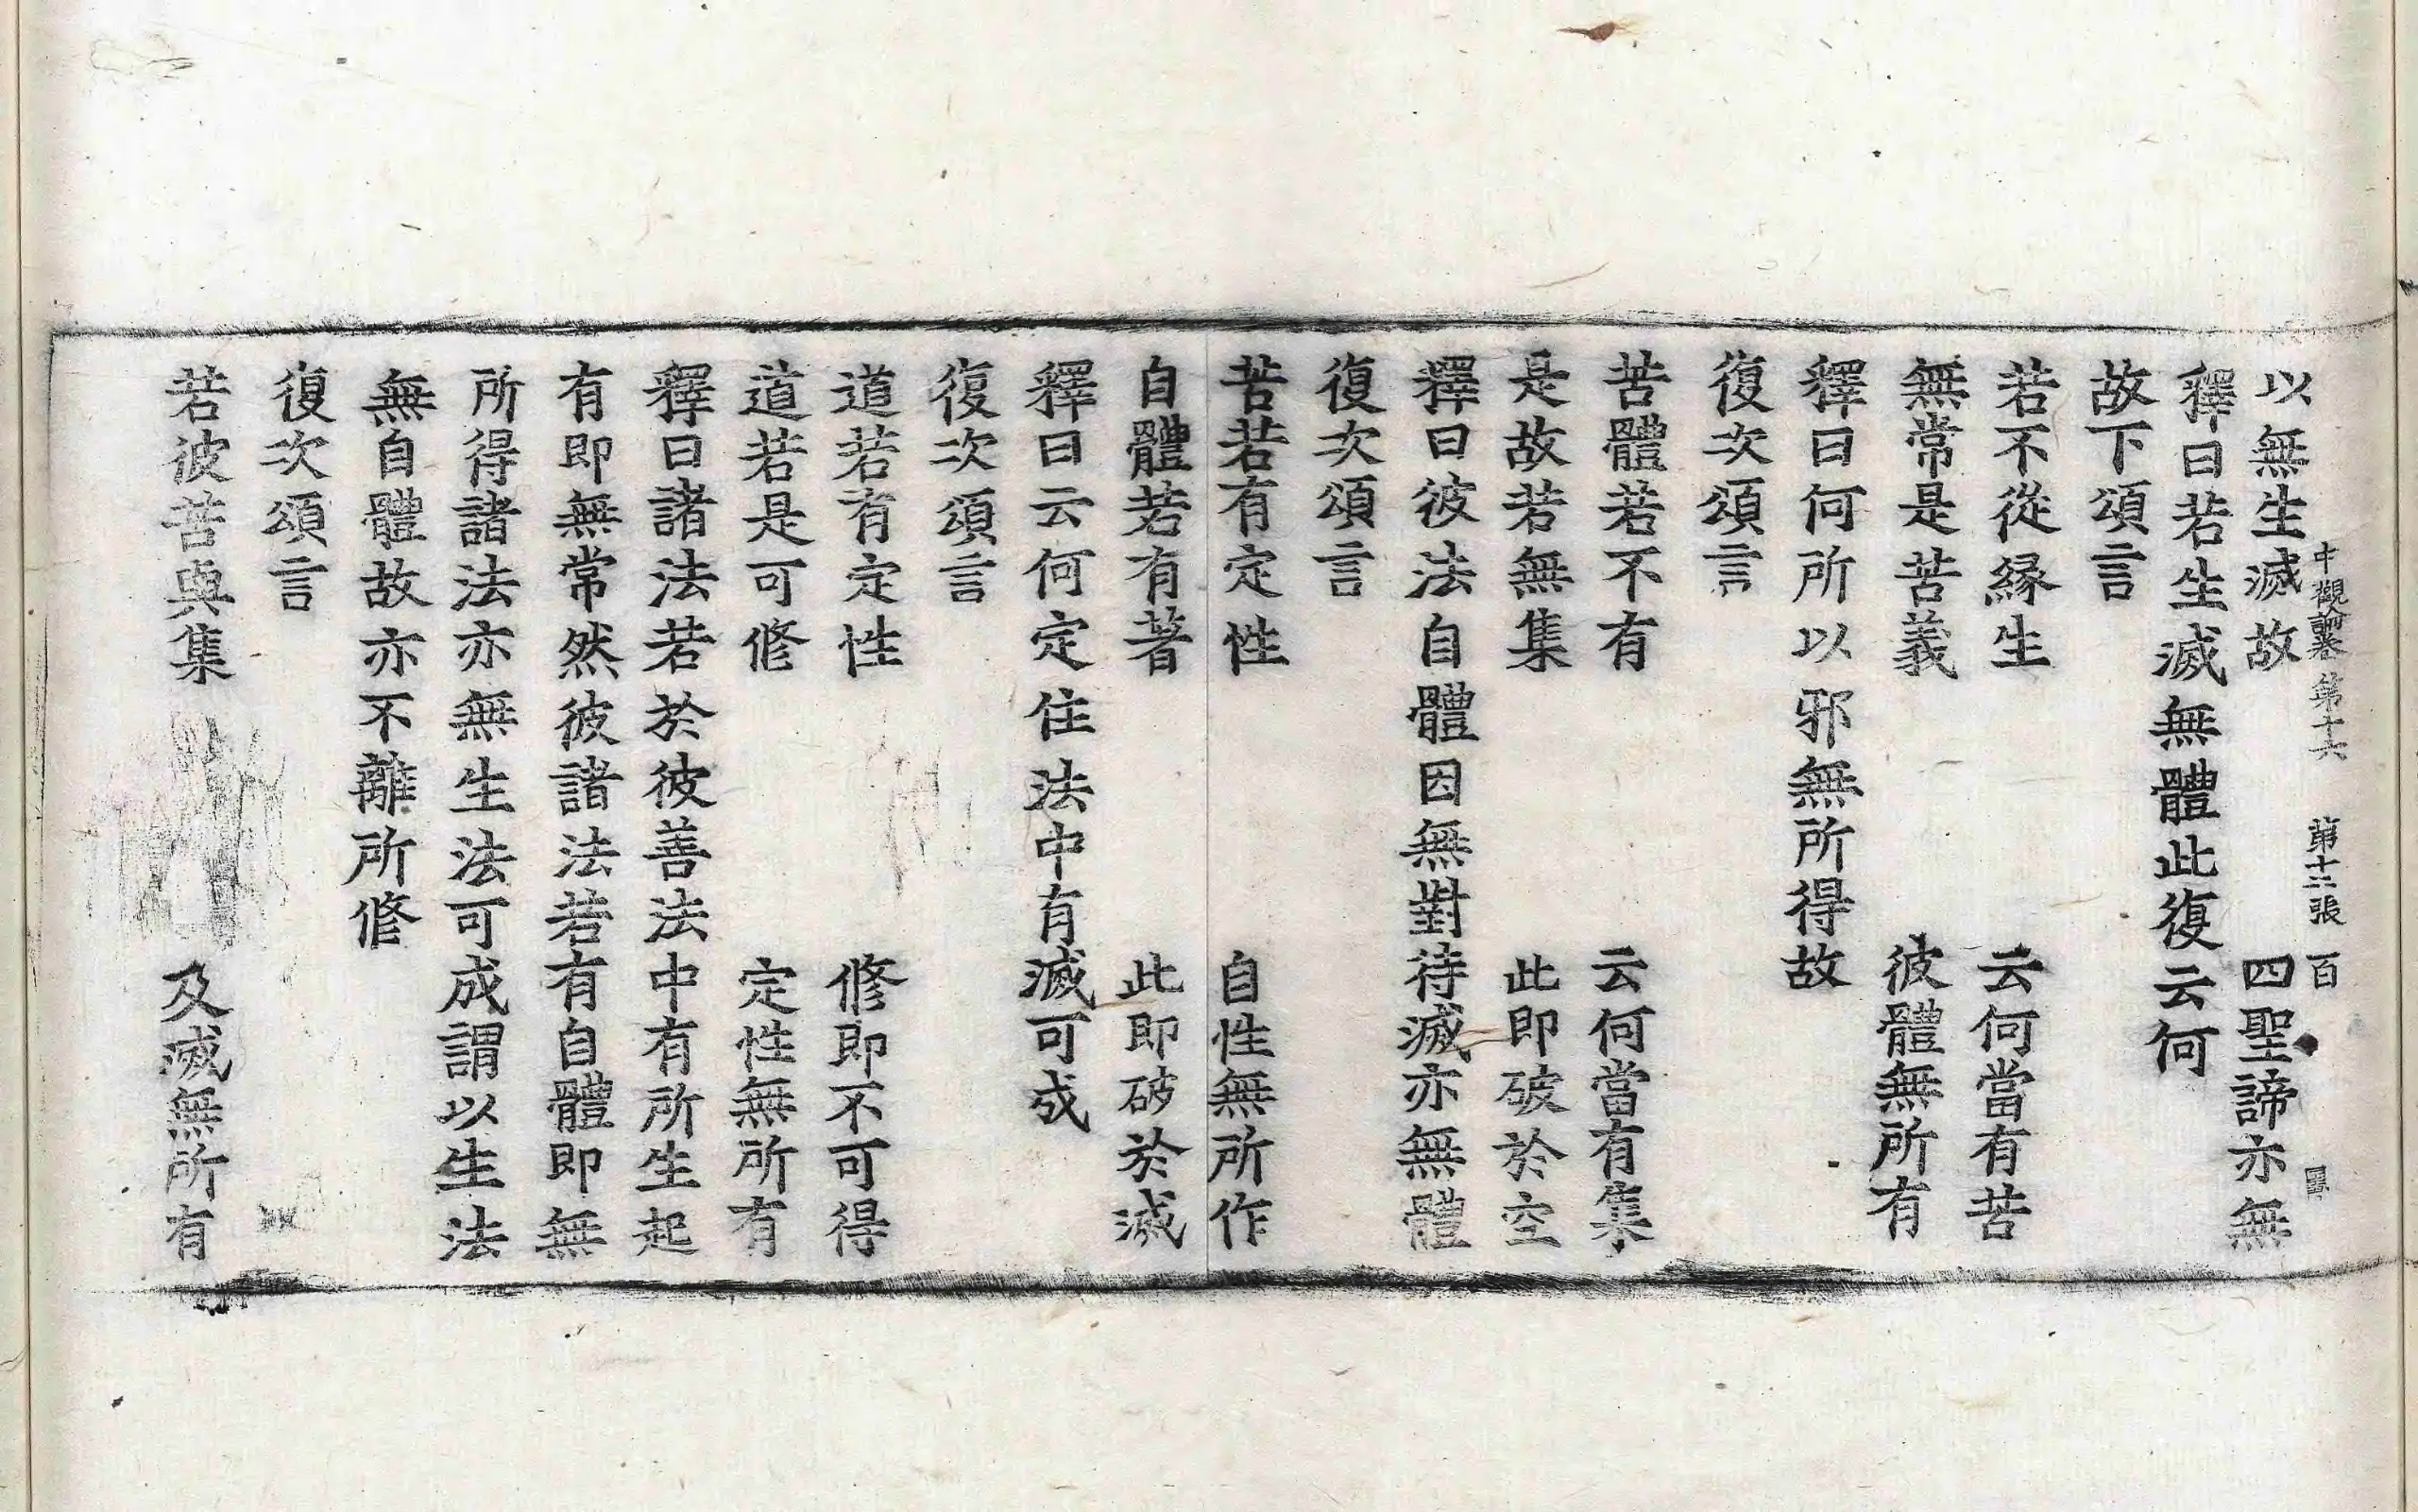 以無生滅故　四聖諦亦無
中觀論卷第十六　第十二張　百
釋曰若生滅無體此復云何
故下頌言
若不從緣生　云何當有苦
無常是苦義　彼體無所有
釋曰何所以邪無所得故
復次頌言
苦體若不有　云何當有集
是故若無集　此即破於空
釋曰彼法自體因無對待滅亦無體
復次頌言
苦若有定性　自性無所作
自體若有著　此即破於滅
釋曰云何定住法中有滅可成
復次頌言
道若有定性　修即不可得
道若是可修　定性無所有
釋曰諸法若於彼善法中有所生起
有即無常然彼諸法若有自體即無
所得諸法亦無生法可成謂以生法
無自體故亦不離所修
復次頌言
若彼苦與集　及滅無所有